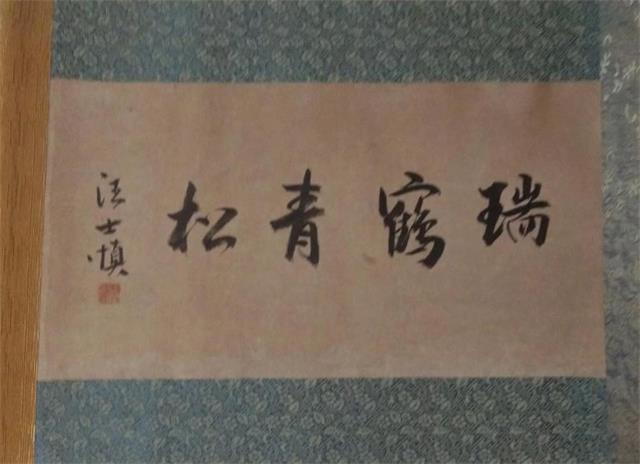 瑞鶴青松
汪士慎